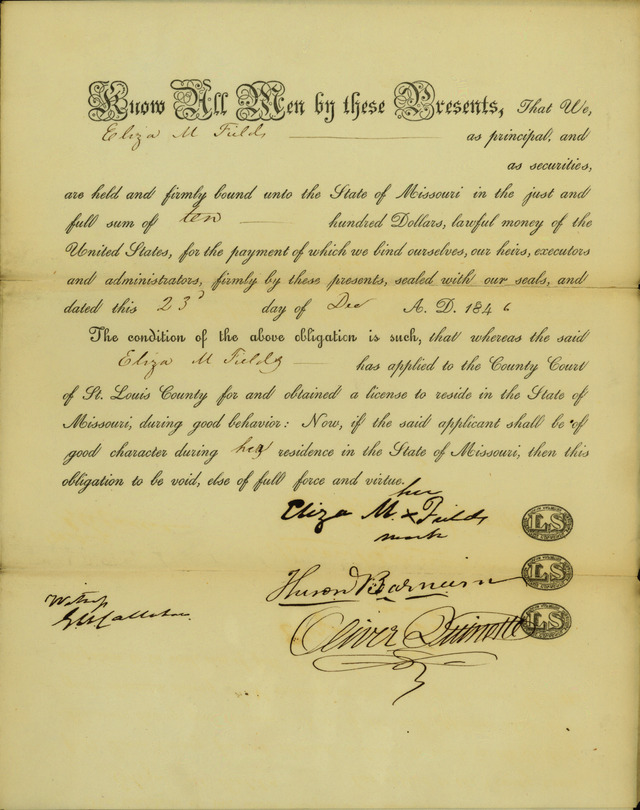 Know All Men by these Presents, That We,
Eliza M Fields as principal, and
as securities,
are held and firmly bound unto the State of Missouri in the just and
full sum of ten hundred Dollars, lawful money of the
United States, for the payment of which we bind ourselves, our heirs, executors
and administrators, firmly by these presents, sealed with our seals, and
dated this 23d day of Dec A. D. 1846
The condition of the above obligation is such, that whereas the said
Eliza M Fields has applied to the County Court
of St. Louis County for and obtained a license to reside in the State of
Missouri, during good behavior: Now, if the said applicant shall be of
good character during her residence in the State of Missouri, then this
obligation to be void, else of full force and virtue.
her
Eliza M. x Fields
mark
LS
Barnum
LS
Oliver
LS